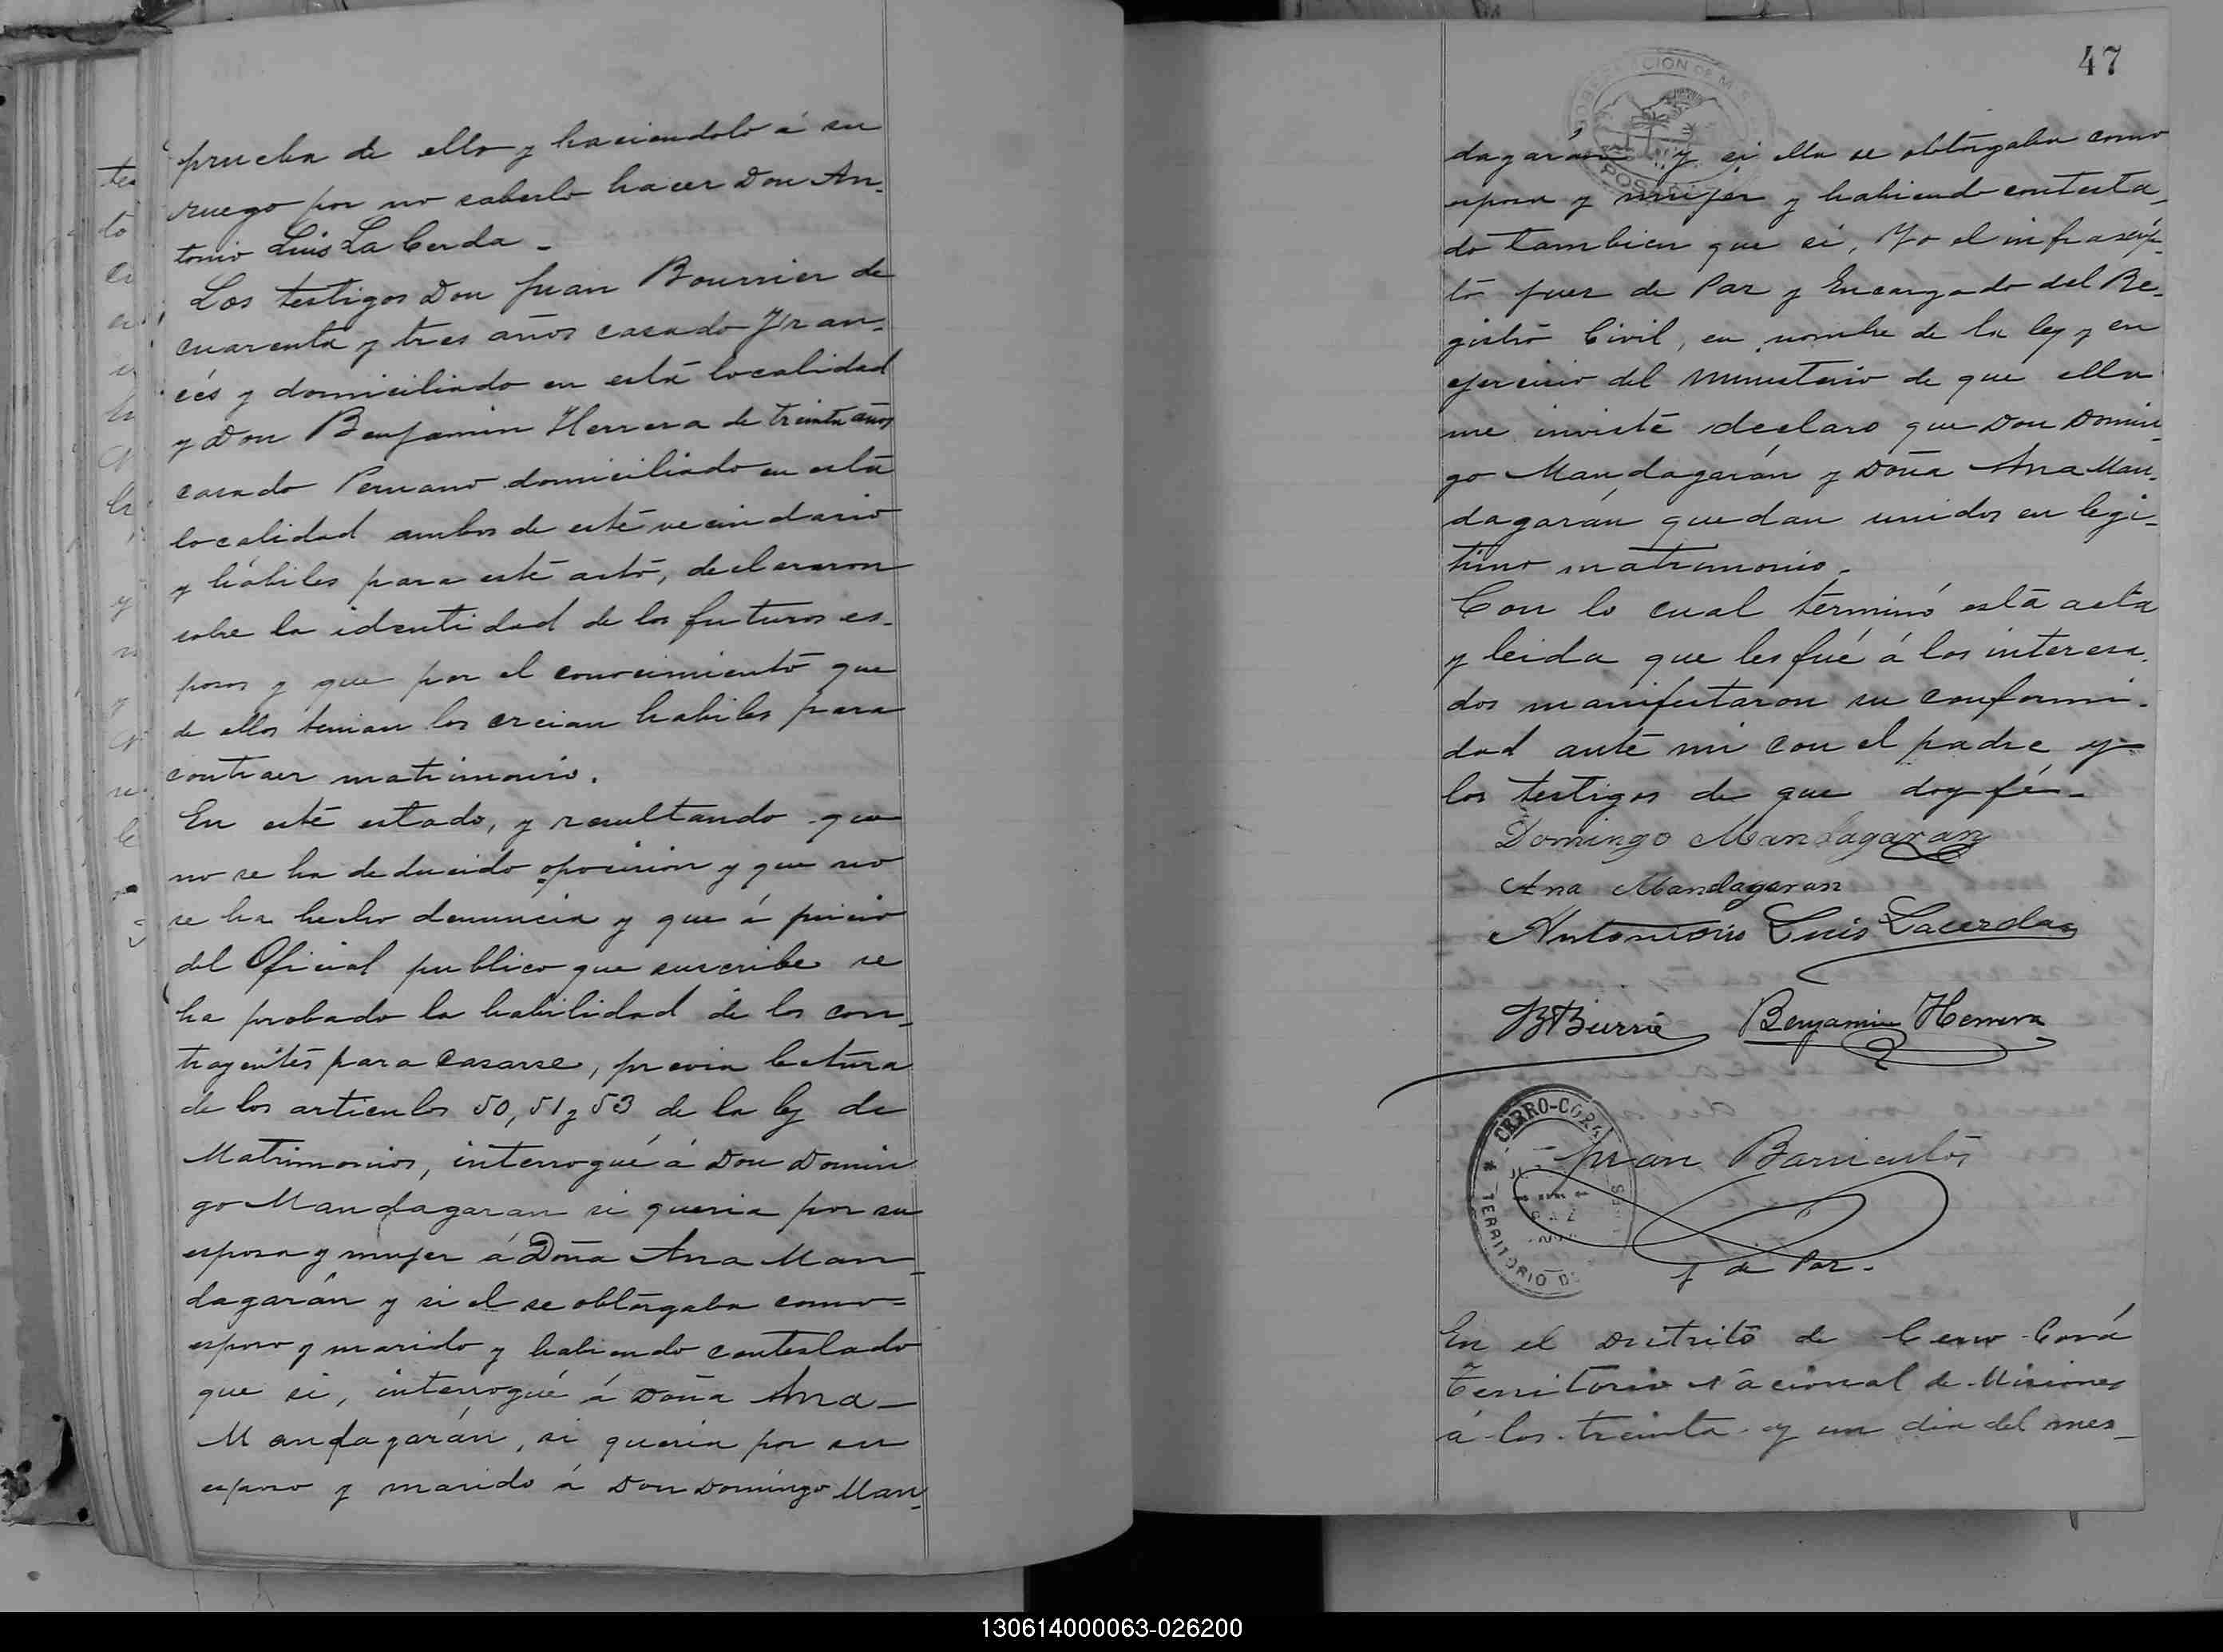 prueba de ello y haciendolo á su
ruego por no saberlo hacer Don An-
tonio Luis La Cerda -
Los testigos Don Juan Bournier de
cuarenta y tres años casado Fran-
cés y domiciliado en esta localidad
y Don Benjamin Herrera de treinta años
casado Peruano domiciliado en esta
localidad ambos de este vecindario
y hábiles para este acto, declararon
sobre la identidad de los futuros es-
posos y que por el conocimiento que
de ellos tenian los creian habiles para
contraer matrimonio.
En este estado, y resultando que
no se ha deducido oposicion y que no
se ha hecho denuncia y que á juicio
del Oficial publico que suscribe se
ha probado la habilidad de los con-
trayentes para casarse, previa lectura
de los articulos 50, 51 y 53 de la ley de
Matrimonios, interrogué á Don Domin
go Mandagaran si queria por su
esposa y mujer á Doña Ana Man-
dagarán y si el se obtorgaba como=
esposo y marido y habiendo contestado
que si, interrogué á Doña Ana-
Mandagarán, si queria por su
esposo y marido á Don Domingo Man-
47
POSADAS
dagarán y si ella se obtorgaba como
esposa y mujer y habiend contesta-
do tambien que si, Yo el infrascrip-
to Juez de Paz y Encargado del Re-
gistro Civil, en nombre de la ley y en
ejercicio del ministerio de que ella
me inviste declaro que Don Domin-
go Mandagarán y Doña Ana Man-
dagarán quedan unidos en legi-
timo matrimonio.
Con lo cual terminó esta acta
y leida que les fué á los interesa-
dos manifestaron su conformi-
dad ante mi con el padre y
los testigos de que doy fé.-
Domingo Mandagaran
Ana Mandagaran
Antonio Luis Lacerda
Benjamin Herrera
CERRO-CORÁ
TERRITORIO
Juan Barrientos
J de Paz.
En el distrito de Cerro-Corá
Territorio nacional de Misiones
á los treinta y un dia del mes-
130614000063-026200